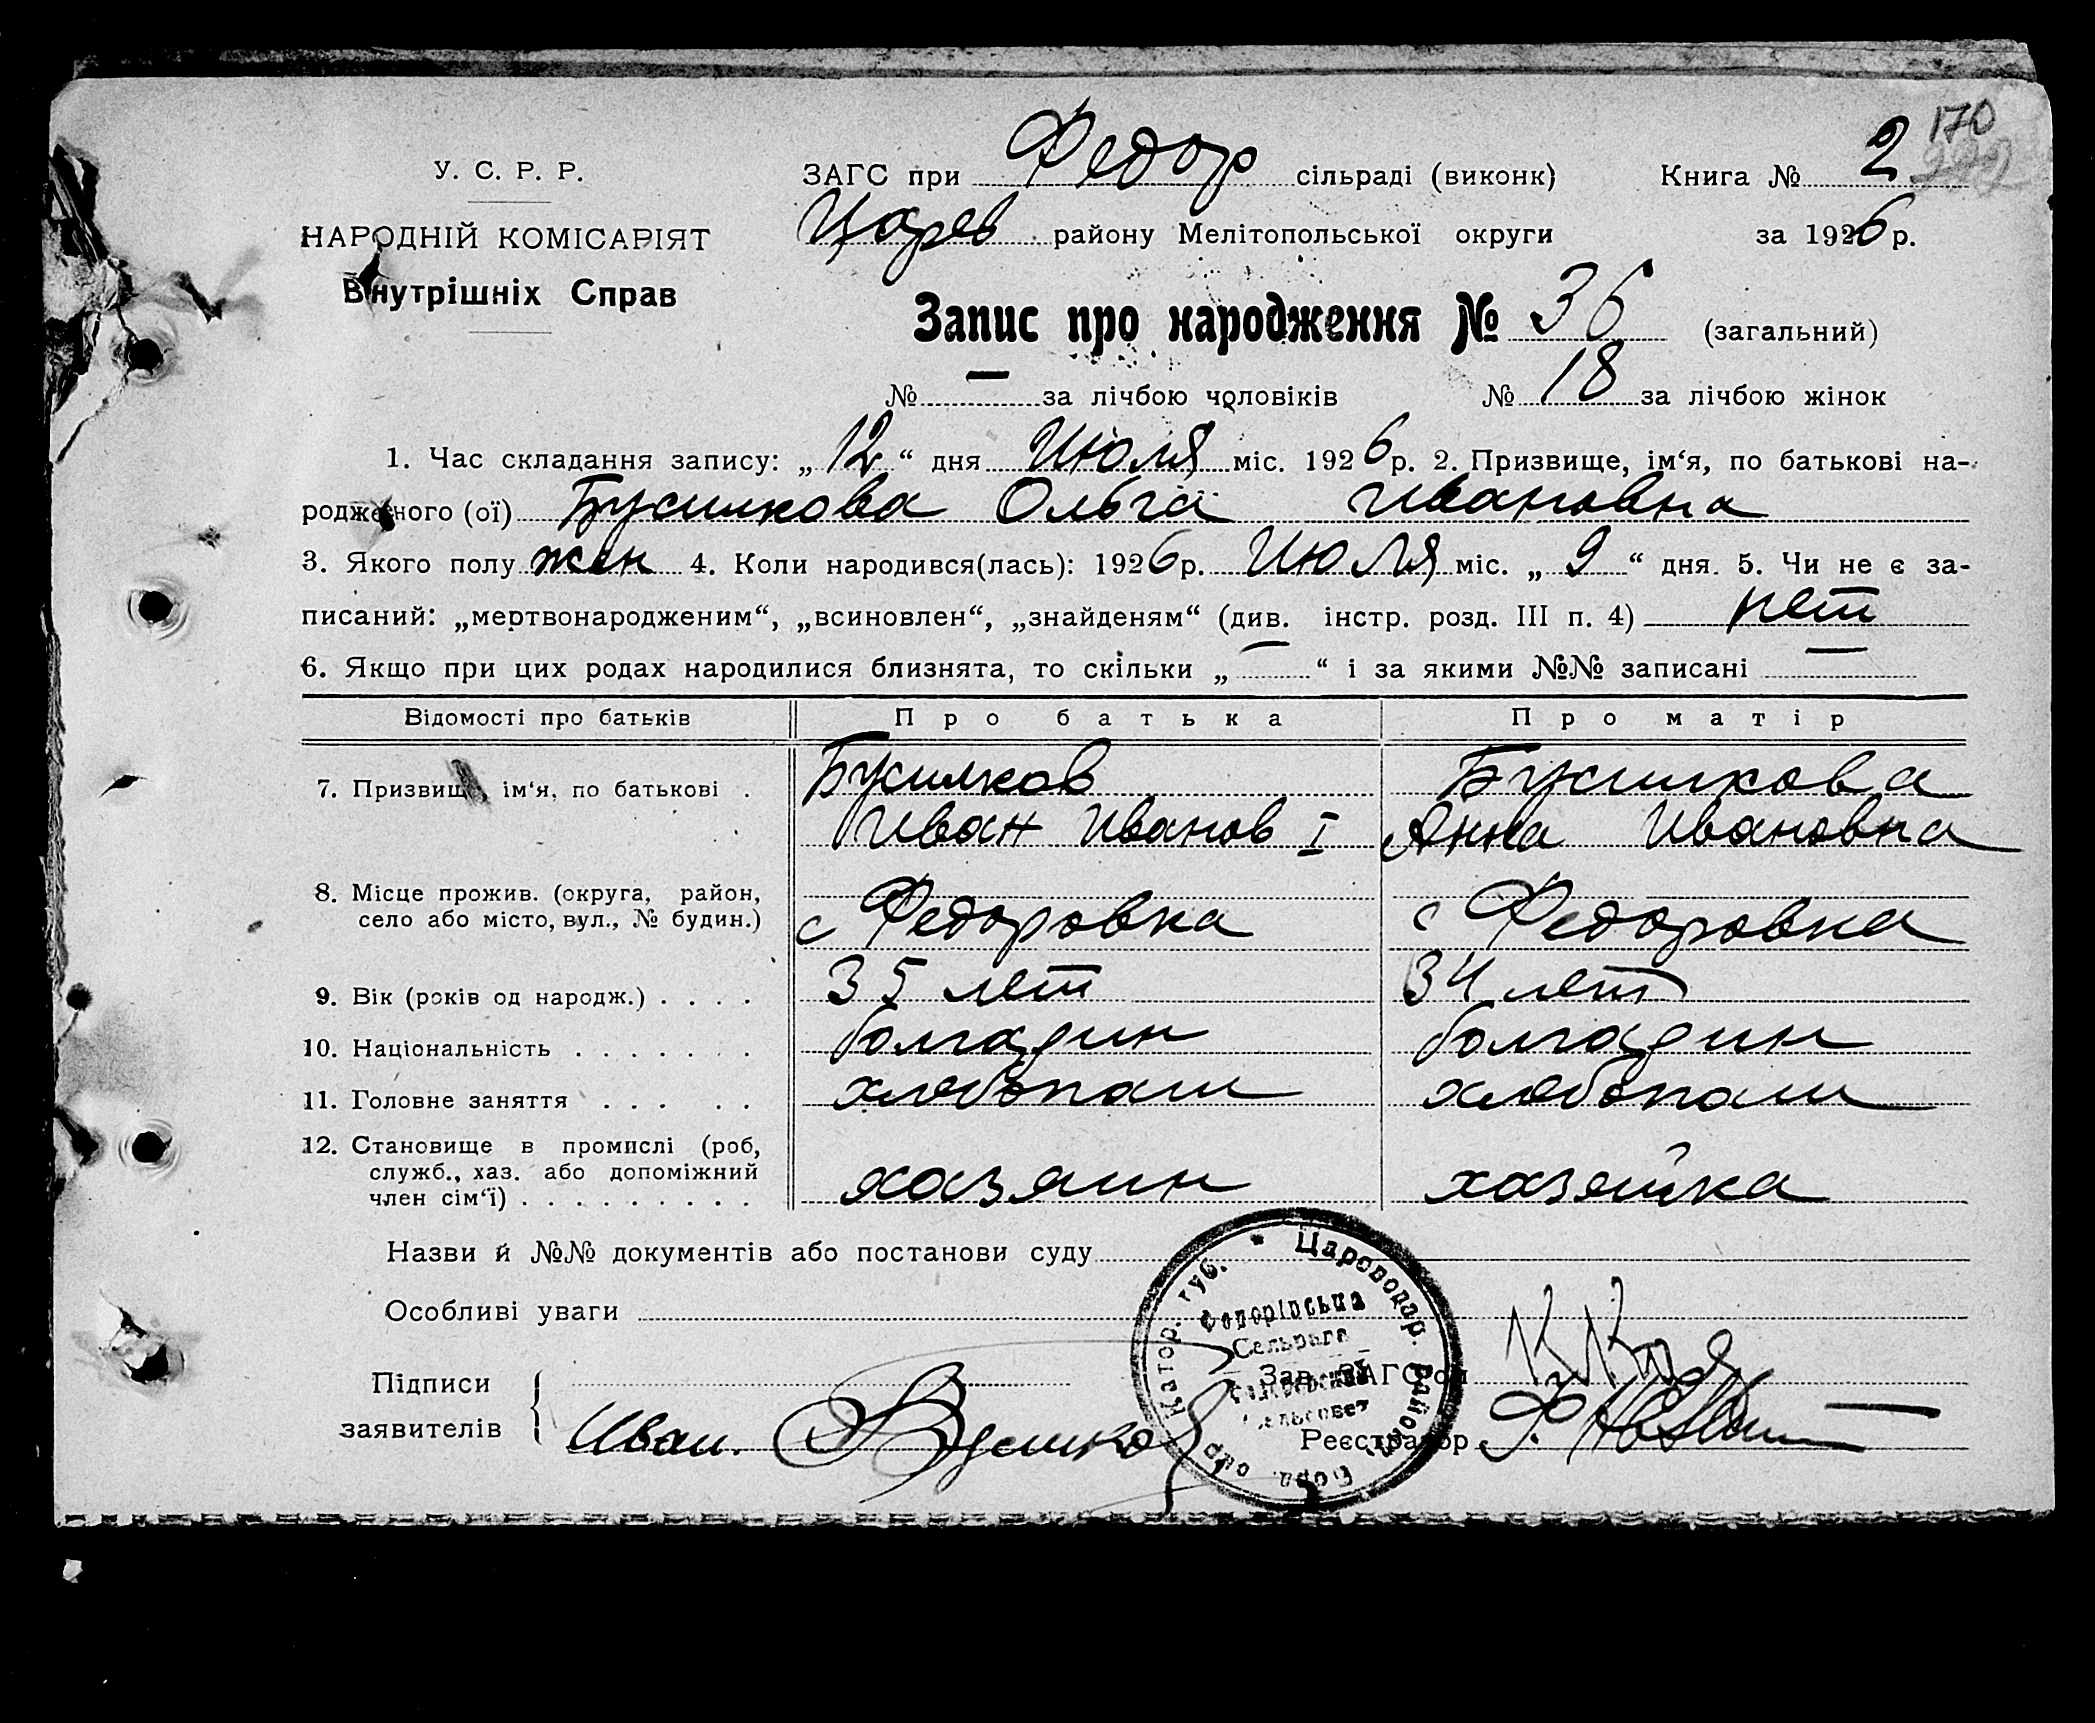 170
У. С. Р. Р.
НАРОДНІЙ КОМІСАРІЯТ
Внутрішніх Справ
ЗАГС при Федор сільраді (виконк) Книга № 2
Царев району Мелітопольської округи за 1926 р.
Запис про народження № 36 (загальний)
№ — за лічбою чоловіків № 18 за лічбою жінок
1. Час складання запису: „12“ дня Июля міс. 1926 р. 2. Призвище, ім‘я, по батькові на-
родженого (ої) Бусилкова Ольга Ивановна
3. Якого полу жен 4. Коли народився(лась): 1926 р. Июля міс. „9“ дня. 5. Чи не є за-
писаний: „мертвонародженим“, „всиновлен“, „знайденям“ (див. інстр. розд. III п. 4) нет
6. Якщо при цих родах народилися близнята, то скільки „ — “ і за якими №№ записані —
Відомості про батьків Про батька Про матір
7. Призвище, ім‘я, по батькові . Бусилков Бусилкова
Иван Иванов I Анна Ивановна
8. Місце прожив. (округа, район,
село або місто, вул., № будин.) с Федоровка с Федоровка
9. Вік (років од народж.) . . . . 35 лет 34 лет
10. Національність . . . . . . . болгарин болгарин
11. Головне заняття . . . . . хлебопаш хлебопаш
12. Становище в промислі (роб,
служб., хаз. або допоміжний
член сім‘ї) . . . . . . . . . хозяин хозяйка
Назви й №№ документів або постанови суду
Особливі уваги
Підписи
заявителів Иван.
Зав. ЗАГС‘ом
Реєстратор
Цароводар. район.
Катер. губ.
Федорівська
Сельрада
Сельсовет